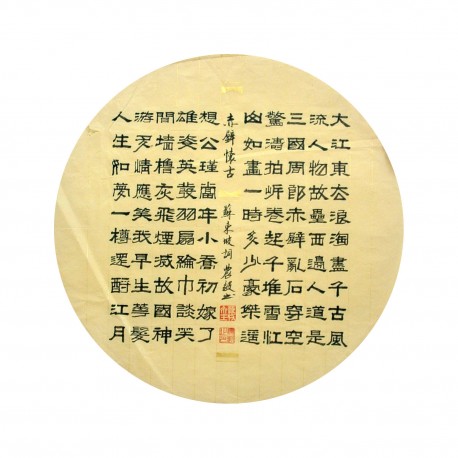 大江東去浪淘盡千古風
流人物故壘西邊人道是
三國周郎赤壁亂石穿空
驚濤拍岍卷起千堆雪江
山如畫一時多少豪傑遥
赤壁懷古 蘇東坡詞
想公瑾當年小喬初嫁了
雄姿英發羽扇綸巾談笑
間墻櫓灰飛煙滅故國神
游多情應笑我早生華髮
人生如夢一樽還酹江月